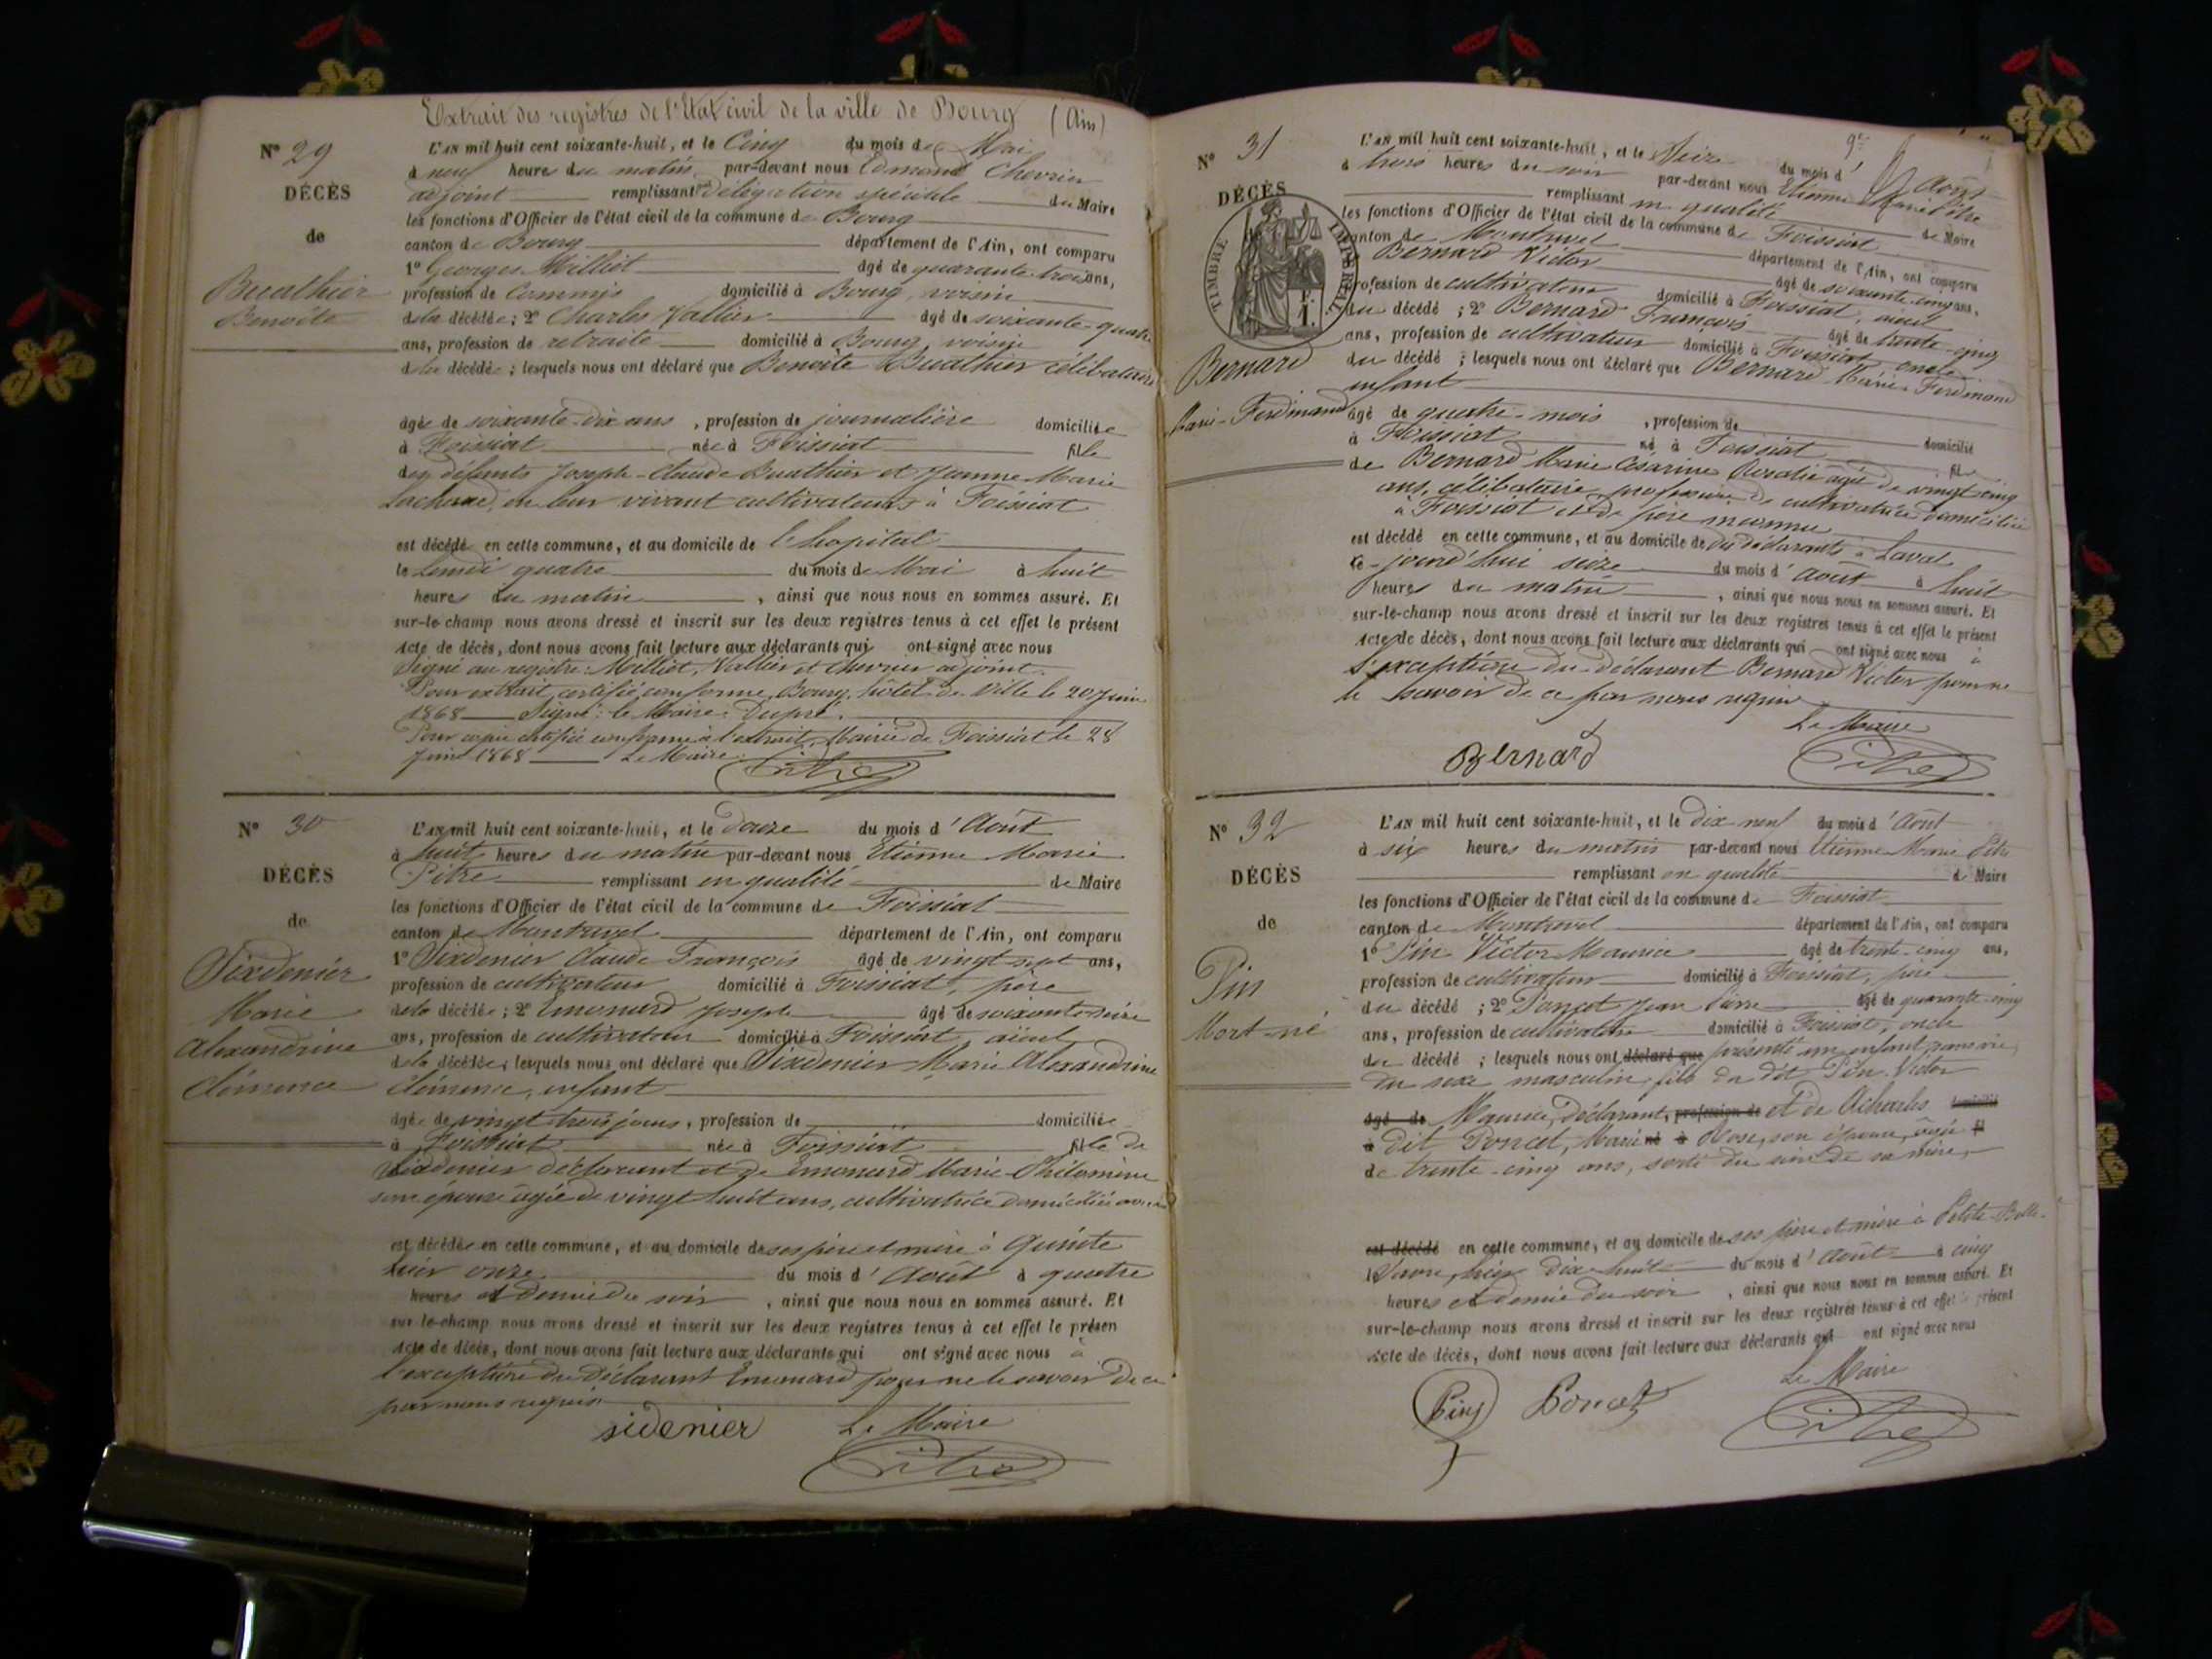 Extrait des registres de l'Etat civil de la ville de Bourg (Ain)
N° 29
DÉCÈS
de
Buathier
Benoîte
L'AN mil huit cent soixante-huit, et le Cinq du mois de Mai
à neuf heures du matin, par-devant nous Edmond Chevrier
adjoint remplissant par délégation spéciale du Maire
les fonctions d'Officier de l'état civil de la commune de Bourg
canton de Bourg département de l'Ain, ont comparu
1° Georges Milliet âgé de quarante-trois ans,
profession de Commis domicilié à Bourg, voisin
de la décédée ; 2° Charles Vallier âgé de soixante-quatre
ans, profession de retraité domicilié à Bourg, voisin
de la décédée ; lesquels nous ont déclaré que Benoîte Buathier célibataire
âgée de soixante-dix ans, profession de journalière domiciliée
à Foissiat née à Foissiat fille
des défunts Joseph-Claude Buathier et Jeanne Marie
en leur vivant cultivateurs à Foissiat
est décédée en cette commune, et au domicile de l'hopital
le Lundi quatre du mois de Mai à huit
heures du matin, ainsi que nous nous en sommes assuré. Et
sur-le-champ nous avons dressé et inscrit sur les deux registres tenus à cet effet le présent
Acte de décès, dont nous avons fait lecture aux déclarants qui ont signé avec nous
Signé au registre : Milliet, Vallier et Chevrier adjoint.
Pour extrait certifié conforme, Bourg, hôtel de Ville le 20 Juin
1868 Signé : le Maire : Dupré.
Pour copie certifiée conforme à l'extrait, Mairie de Foissiat le 28
Juin 1868 Le Maire
Pitre
N° 30
DÉCÈS
de
Sixdenier
Marie
Alexandrine
Clémence
L'AN mil huit cent soixante-huit, et le douze du mois d'Août
à huit heures du matin par-devant nous Etienne Marie
Pitre remplissant en qualité de Maire
les fonctions d'Officier de l'état civil de la commune de Foissiat
canton de Montrevel département de l'Ain, ont comparu
1° Sixdenier Claude François âgé de vingt-sept ans,
profession de cultivateur domicilié à Foissiat, père
de la décédée ; 2° Emonard Joseph âgé de soixante-seize
ans, profession de cultivateur domicilié à Foissiat, aïeul
de la décédée ; lesquels nous ont déclaré que Sixdenier Marie Alexandrine
Clémence, enfant
âgée de vingt trois jours, profession de domiciliée
à Foissiat née à Foissiat fille de
Sixdenier déclarant et de Emonard Marie-Philomène
son épouse âgée de vingt huit ans, cultivatrice domiciliée
est décédée en cette commune, et au domicile de ses père et mère à
hier onze du mois d'Août à quatre
heures et demie du soir, ainsi que nous nous en sommes assuré. Et
sur-le-champ nous avons dressé et inscrit sur les deux registres tenus à cet effet le présen
Acte de décès, dont nous avons fait lecture aux déclarants qui ont signé avec nous à
l'exception du déclarant Emonard pour ne le savoir de ce
par nous requis
sidenier Le Maire
Pitre
N° 31
DÉCÈS
TIMBRE IMPÉRIAL
1 F.
Bernard
Marie-Ferdinand
L'AN mil huit cent soixante-huit, et le Seize du mois d'Août
à trois heures du soir par-devant nous Etienne Marie Pitre
remplissant en qualité de Maire
les fonctions d'Officier de l'état civil de la commune de Foissiat
canton de Montrevel département de l'Ain, ont comparu
Bernard Victor âgé de soixante-cinq ans,
profession de cultivateur domicilié à Foissiat, aïeul
du décédé ; 2° Bernard François âgé de trente-cinq
ans, profession de cultivateur domicilié à Foissiat oncle
du décédé ; lesquels nous ont déclaré que Bernard Marie-Ferdinand
enfant
âgé de quatre mois, profession de domicilié
à Foissiat né à Foissiat fil
de Bernard Marie Césarine Rosalie âgée de vingt cinq
ans, célibataire profession de cultivatrice domiciliée
à Foissiat et de père inconnu
est décédé en cette commune, et au domicile des déclarants à Laval
ce-jourd'hui seize du mois d'Août à huit
heures du matin, ainsi que nous nous en sommes assuré. Et
sur-le-champ nous avons dressé et inscrit sur les deux registres tenus à cet effet le présent
Acte de décès, dont nous avons fait lecture aux déclarants qui ont signé avec nous à
l'exception du déclarant Bernard Victor pour ne
le savoir de ce par nous requis
Le Maire
Bernard Pitre
N° 32
DÉCÈS
de
Pin
Mort-né
L'AN mil huit cent soixante-huit, et le dix neuf du mois d'Août
à six heures du matin par-devant nous Etienne Marie Pitre
remplissant en qualité de Maire
les fonctions d'Officier de l'état civil de la commune de Foissiat
canton de Montrevel département de l'Ain, ont comparu
1° Pin Victor Maurice âgé de trente-cinq ans,
profession de cultivateur domicilié à Foissiat, père
du décédé ; 2° Poncet Jean Pierre âgé de quarante-cinq
ans, profession de cultivateur domicilié à Foissiat, oncle
du décédé ; lesquels nous ont déclaré que présenté un enfant sans vie,
du sexe masculin, fils du dit Pin Victor
âgé de Maurice, déclarant, profession de et de domicilié
à dit Poncet, Marie né à Rose, son épouse, âgée fil
de trente-cinq ans, sorti du sein de sa mère,
est décédé en cette commune, et au domicile de ses père et mère à Petite
hier dix huit du mois d'Août à cinq
heures et demie du soir, ainsi que nous nous en sommes assuré. Et
sur-le-champ nous avons dressé et inscrit sur les deux registres tenus à cet effet le présent
Acte de décès, dont nous avons fait lecture aux déclarants qui ont signé avec nous
Le Maire
Pin Poncet Pitre